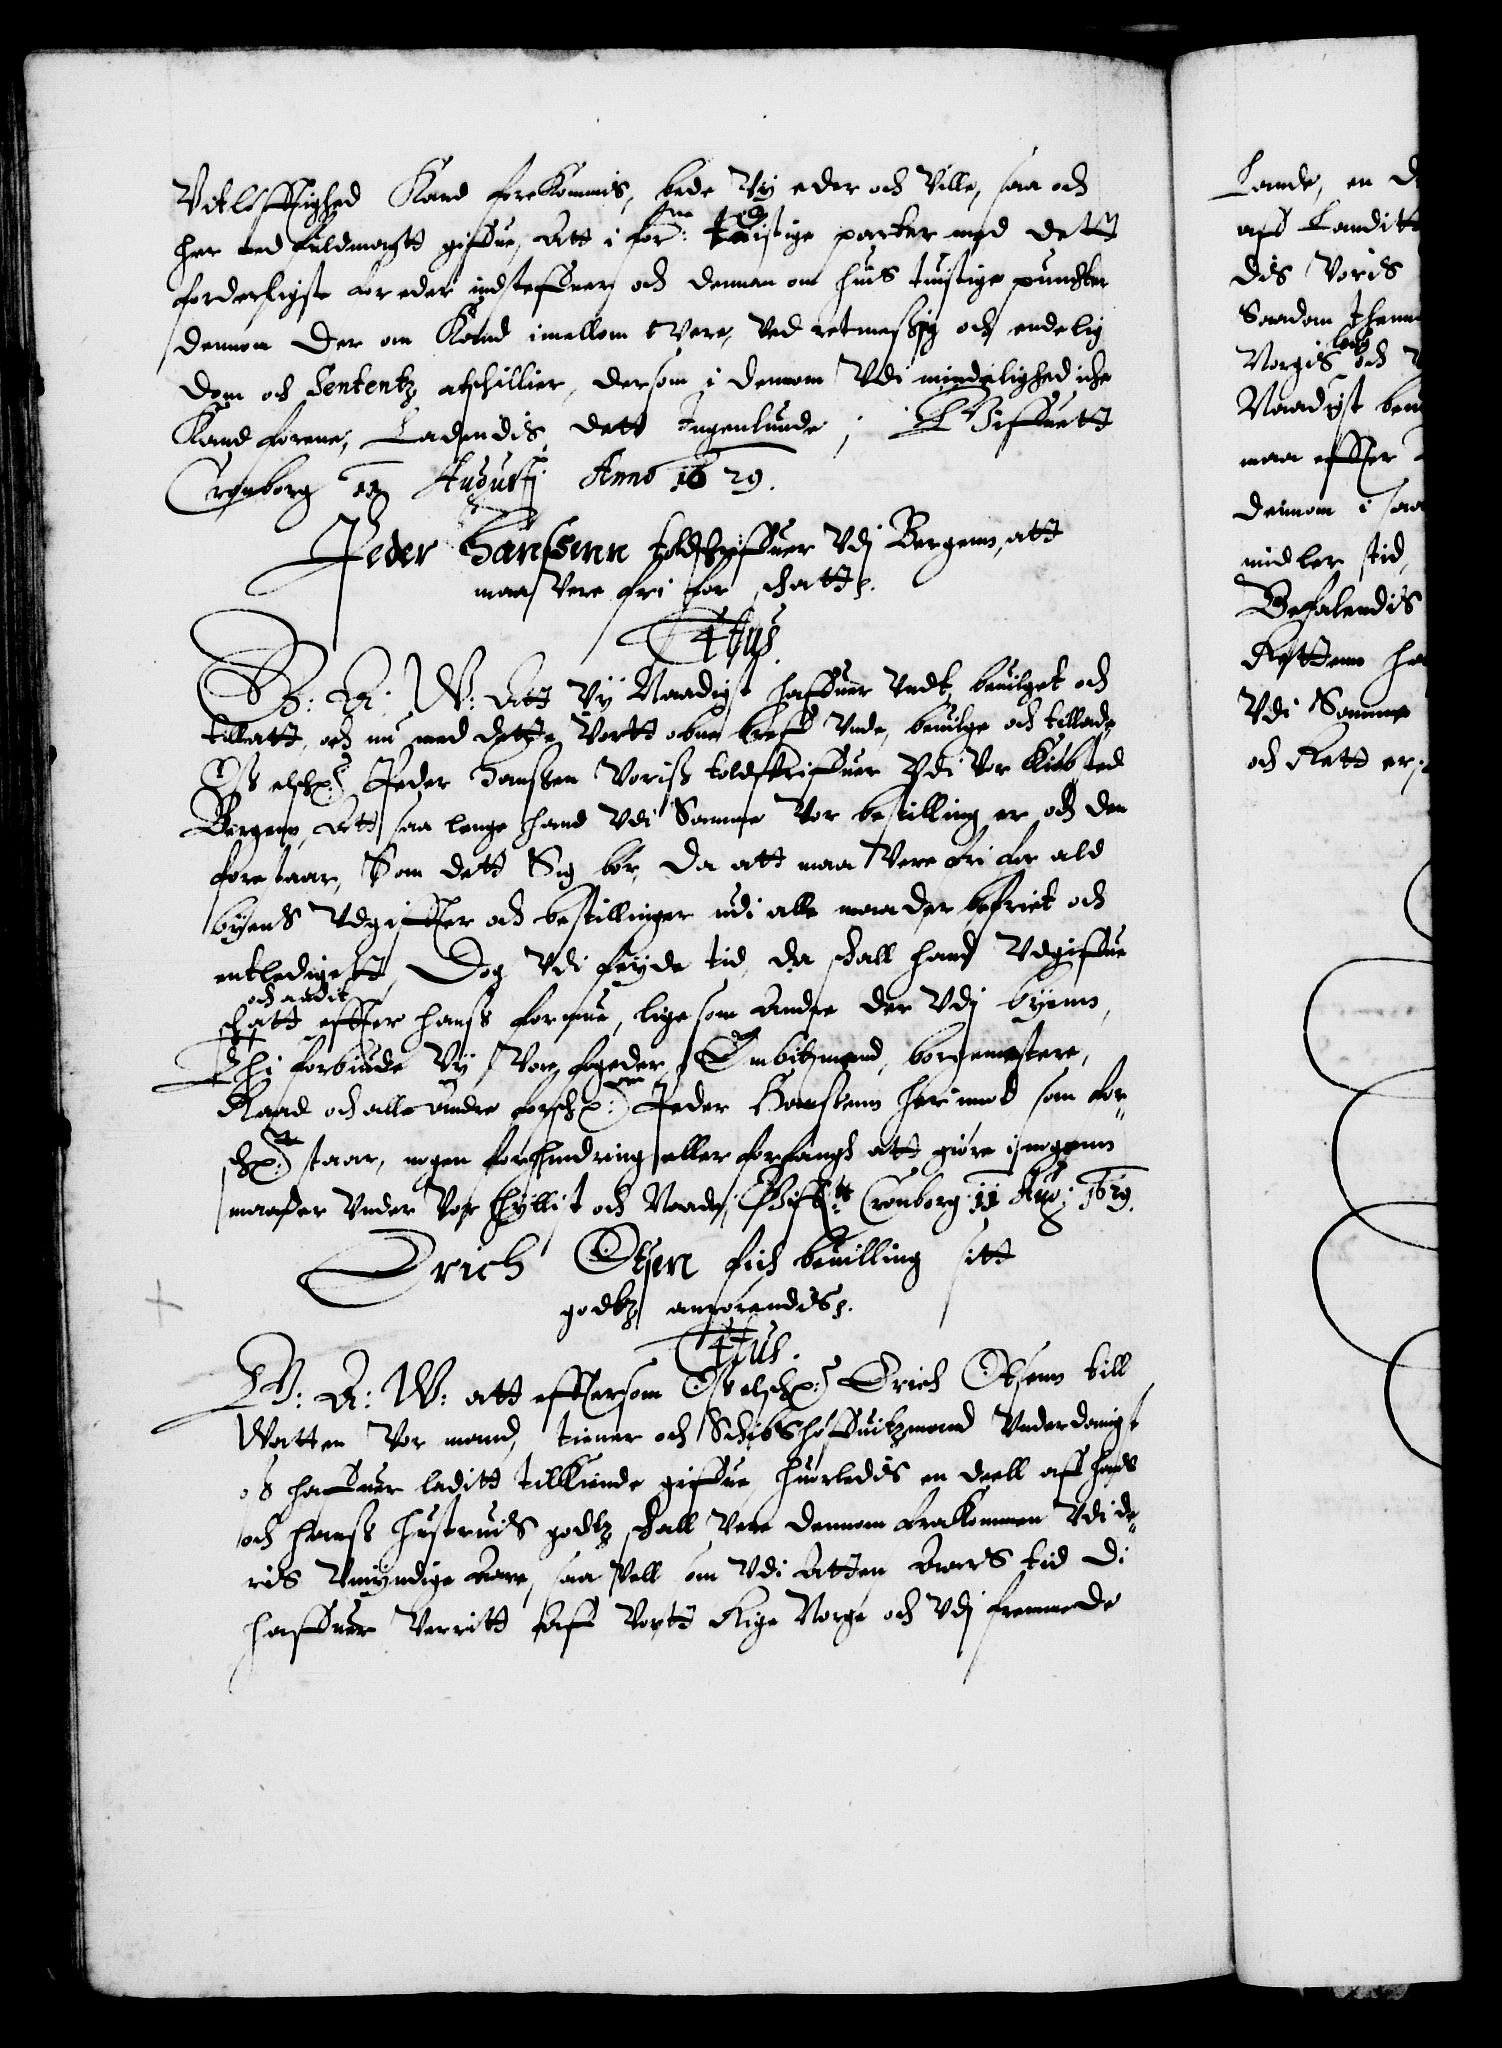 Vitløfftighed Kand forekommis, bede Vy eder och Ville, saa och
her med fuldmagtt giffue, Att i forne: tuistige parter med dett
forderligste for eder indsteffner, och dennom om huis tuistige puncter
dennom der om Kand imellom Vere, Ved retmessig och endelig
dom och Sententz atschillier, dersom i dennom Vdi mindelighed iche
Kand forene, Ladendis dett Ingenlunde; Giffuett
Cronborg 11 Augustj Anno 1629.
Peder Hanssønn toldschriffuer Vdj Bergenn, att
maa Vere fri for schatt.
C4tus.
G: A: W: Att Vy Naadigst haffuer Vndt, beuilget och
tilladt, och nu med dette Vortt obne breff Vnde, beuilge och tillade
Oss elschel: Peder Hanssen Voris toldskriffuer Vdi Vor Kiøbsted
Bergenn, Att saa lenge hand Vdi Samme Vor bestilling er, och den
forestaar, Som dett Sig bør, da att maa Vere fri for ald
byens Vdgiffter och bestillinger udi alle maader befriet och
entledigett, Dog Vdi feyde tid, da schall hand Vdgiffue
och andit
schatt effter hanss formue, lige som Andre der Vdj byenn,
Thi forbiude Vy Vor fogeder, Embitzmend, borgemestere,
Raad och alle Andre forschel:ne Peder Hanssenn her imod som for-
schel: staar, nogen forhindring eller forfangh att giøre i nogenn
maader Vnder Vor hyllist och Naade, Giff:tt Cronborg 11 Aug: 1629.
Erich Otsen fich beuilling sitt
godtz anrørendis.
C4tus.
G: A: W: att efftersom Oss elschel: Erich Otsenn till
Watten Vor mand, tiener och Schibshøffuitzmand Vnderdanigst
os haffuer laditt tilkiende giffue, huorledis en deell aff hans
och hanss hustruis godtz schall Vere dennom frakommen Vdi de-
ris Vmyndige Aare, saa Vell om Vdi Atten Aars tid di
haffuer Verritt Aff Vortt Rige Norge och Vdj fremmede
Lande, en d
aff Landit
dis Voris
Saadan
Norgis loug och
Naadigst be
maa effter
dennom i saa
midler tid,
Befalendis
Retten ha
Vdi Samme
och Rett er